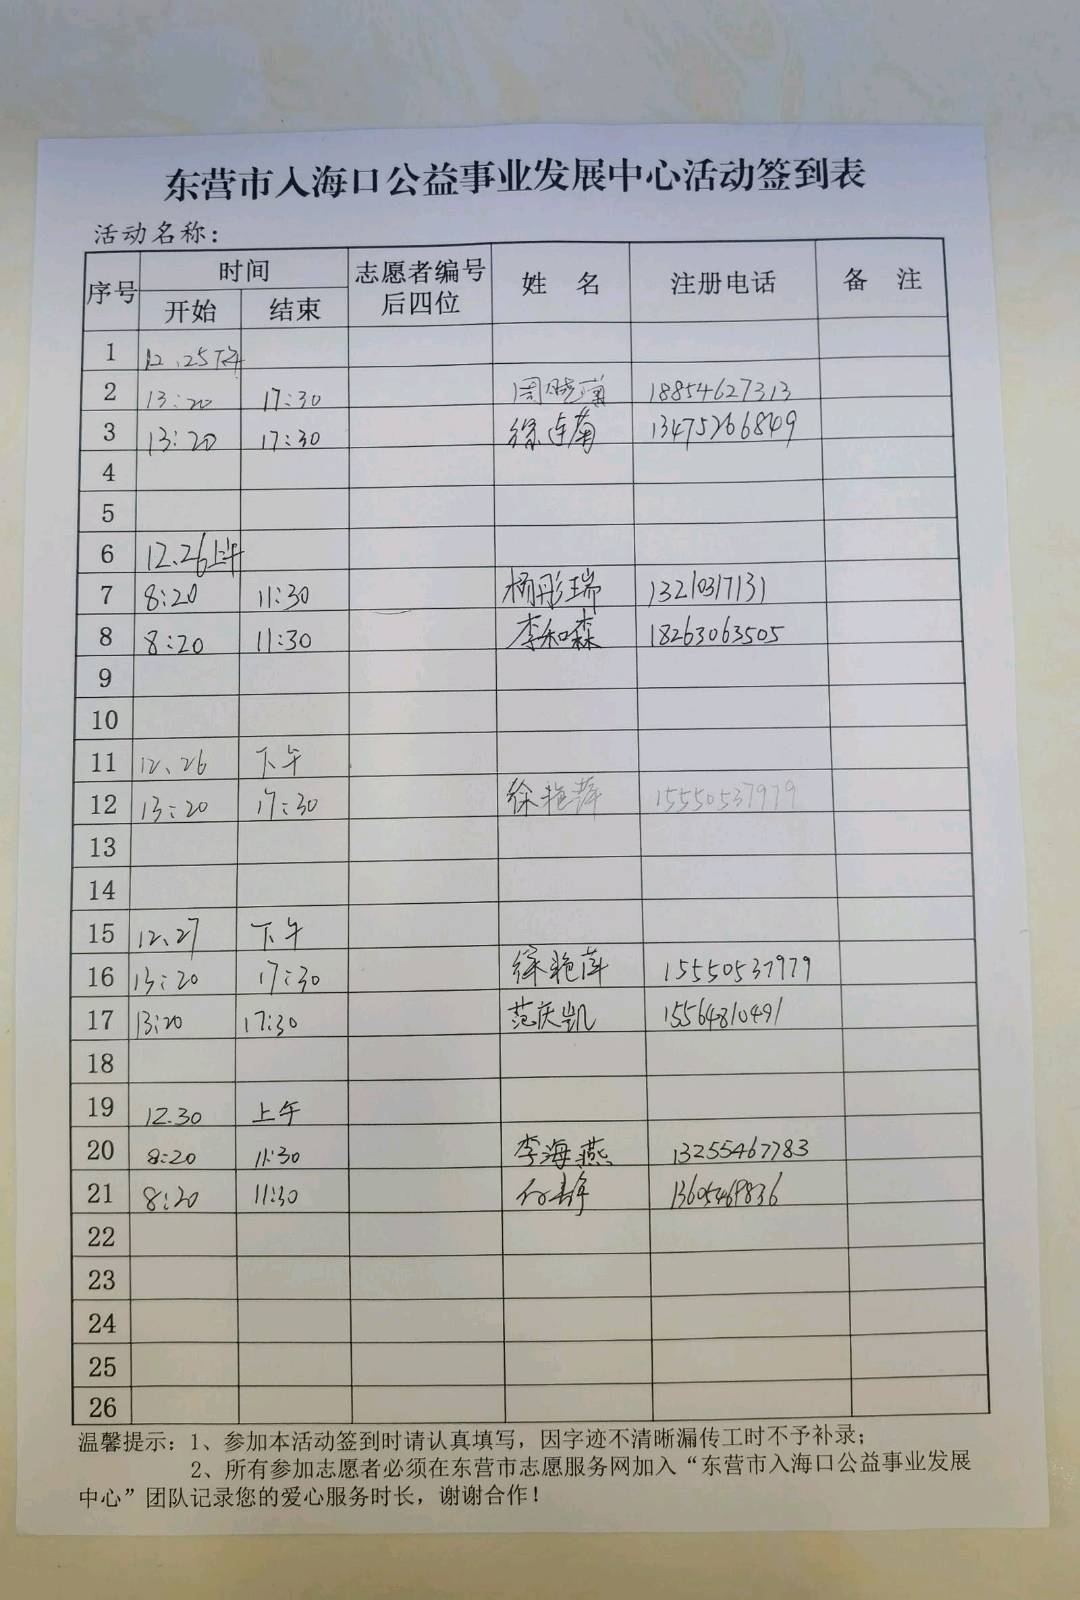 东营市入海口公益事业发展中心活动签到表
活动名称：
序号 时间 志愿者编号后四位 姓 名 注册电话 备 注
开始 结束
1 12.25下午
2 13:20 17:30 周晓 18854627313
3 13:20 17:30 徐连菊 13475266849
4
5
6 12.26上午
7 8:20 11:30 杨彤瑞 13210317131
8 8:20 11:30 李和森 18263063505
9
10
11 12、26 下午
12 13:20 17:30 徐艳萍 15550537979
13
14
15 12、27 下午
16 13:20 17:30 徐艳萍 15550537979
17 13:20 17:30 范庆凯 15564810491
18
19 12.30 上午
20 8:20 11:30 李海燕 13255467783
21 8:20 11:30 13605469836
22
23
24
25
26
温馨提示：1、参加本活动签到时请认真填写，因字迹不清晰漏传工时不予补录；
2、所有参加志愿者必须在东营市志愿服务网加入“东营市入海口公益事业发展
中心”团队记录您的爱心服务时长，谢谢合作！